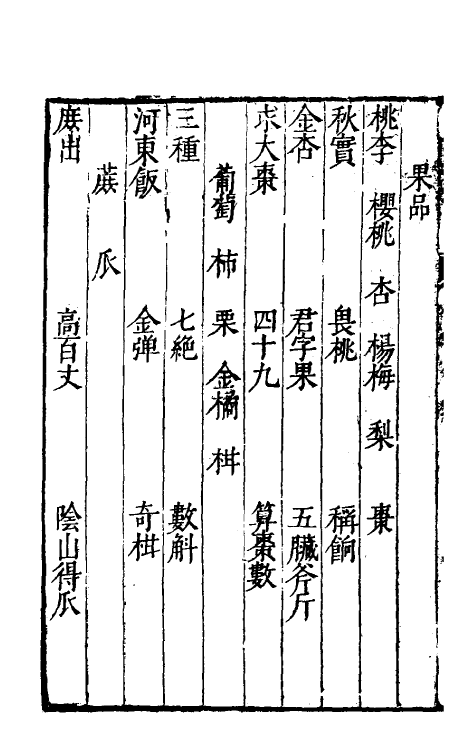 果品
桃李 櫻桃 杏 楊梅 梨 棗
秋實 畏桃 稱餉
金杏 君字果 五臟斧斤
朮大棗 四十九 算棗數
葡萄 柿 栗 金橘 柑
三種 七絕 數斛
河東飯 金弹 奇柑
蔗 瓜
庶出 高百丈 陰山得瓜